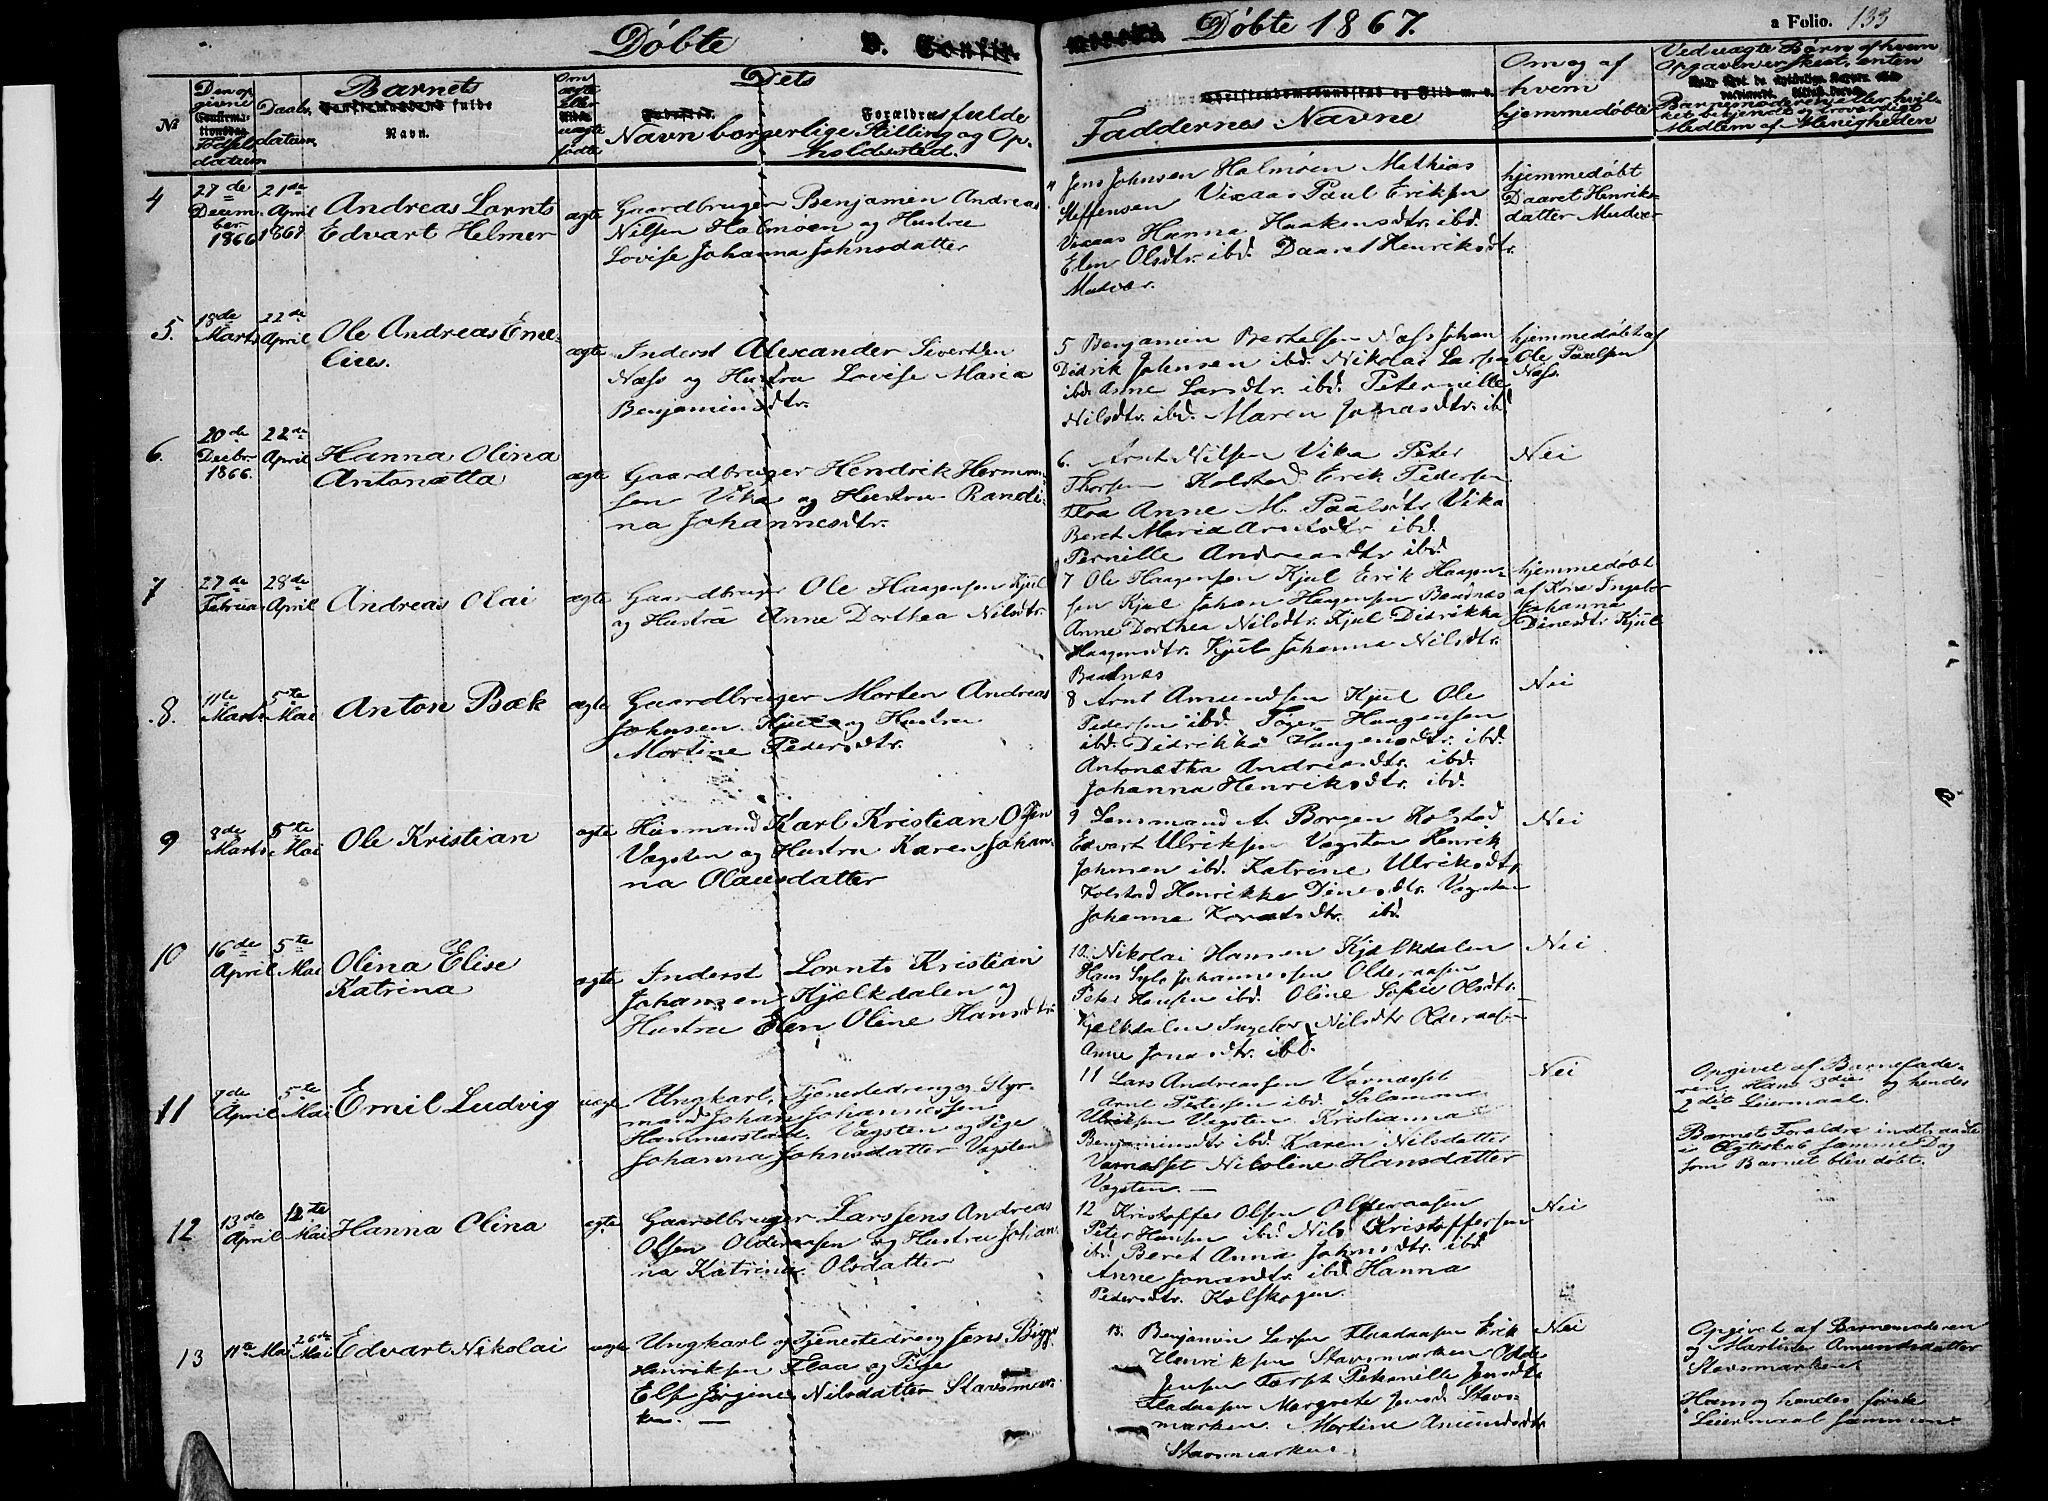 Døbte
Døbte 1867.
a Folio. 133
№
Den op
givne
Fødsels
datum
Daabs
datum
Barnets
fulde
Navn.
Om
ægte
Eller
uægte
fødte
Dets
Forældres fulde
Navn borgerlige Stilling og Op-
holdssted.
Faddernes Navne
Om og af
hvem
hjemmedøbte
Ved uægte Børn af hvem
Opgaven er skeet, enten
Barnemoderen eller hvil-
ket bekjendt og troværdigt
Medlem af Menigheden
4
27de
Decem-
ber
1866
21de
April
1867
Andreas Lornts
Edvart Helmer
ægte
Gaardbruger Benjamin Andreas
Nilsen Halmøen og Hustru
Lovise Johanna Johnsdatter
4 Jens Johnsen Halmøen Mathias
Steffensen Vixaas Paul Eriksen
Vixaas Hanna Haakensdtr. ibd.
Elen Olsdtr. ibd. Daaret Henriksdtr.
Mudvær.
hjemmedøbt
Daaret Henriks-
datter Mudvær
5.
18de
Marts
22de
April
Ole Andreas Eme-
lius.
ægte
Inderst Alexander Sivertsen
Næss og Hustru Lovise Maria
Benjaminsdtr.
5 Benjamin Bertelsen Næss Johan
Didrik Johnsen ibd. Nikolai Larsen
ibd. Anne Larsdtr. ibd. Peternille
Nilsdtr. ibd. Maren Jonasdtr. ibd
hjemmedøbt af
Ole Paulsen
Næss.
6.
20de
Decbr.
1866.
22de
April
Hanna Olina
Antonætta
ægte
Gaardbruger Hendrik Herman-
sen Vika og Hustru Randi-
na Johannesdtr.
6. Arnt Nilsen Vika Peter
Thorsen Kolstad Erik Pedersen
Floa Anne M. Paulsdtr Vika
Beret Maria Arntsdtr ibd.
Pernille Andreasdtr ibd.
Nei
7
27de
Februar
28de
April
Andreas Olai
ægte
Gaardbruger Ole Haagensen Kjul
og Hustru Anne Dorthea Nilsdtr.
7 Ole Haagensen Kjul Erik Haagen-
sen Kjul Johan Haagensen Baadnæs
Anne Dorthea Nilsdtr. Kjul Didrikka
Haagensdtr. Kjul Johanna Nilsdtr.
Baadnæs
hjemmedøbt
af Kone Ingebor
Johanna
Dinesdtr Kjul
8.
11te
Marts
5te
Mai
Anton Bæk
ægte
Gaardbruger Morten Andreas
Johnsen Kjul og Hustru
Martine Pedersdtr.
8 Arnt Amundsen Kjul Ole
Pedersen ibd. Tøger Haagensen
ibd. Didrikka Haagensdtr. ibd.
Antonætha Andreasdtr. ibd.
Johanna Henriksdtr. ibd.
Nei
9
8de
Marts
5te
Mai
Ole Kristian
ægte
Huusmand Karl Kristian Olsen
Vægsten og Hustru Karen Johan-
na Olausdatter
9 Lensmand A. Borgen Kolstad
Edvart Ulriksen Vægsten Henrik
Johnsen ibd. Katrine Ulriksdtr
Kolstad Henrikke Dinesdtr. Vægsten
Johanna Koraisdtr. ibd.
Nei
10
16de
April
5te
Mai
Olina Elise
Katrina
ægte
Inderst Lornts Kristian
Johansen Kjælkdalen og
Hustru Elen Oline Hansdtr
10. Nikolai Hansen Kjælkdalen
Hans Johannessen Olderaasen
Peter Hansen ibd. Oline Sofie Olsdtr.
Kjælkdalen Ingebor Nilsdtr Olderaas-
Anne Jonasdtr. ibd.
Nei
11
7de
April
5te
Mai
Emil Ludvig
uægte
Ungkarl, Tjenestedreng og Styr-
mand Johan Johannessen
Hammerstad Vægsten og Pige
Johanna Johnsdatter Vægsten
11 Lars Andreassen Varnæsset
Arnt Pedersen ibd. Salamon
Ulriksen Vægsten Kristianna
Benjaminsdtr ibd. Karen Nilsdatter
Varnæsset Nikoline Hansdatter
Vægsten. —
Nei
Opgivet af Barnefade-
ren, Hans 3die og hendes
2det Leiermaal.
Barnets Foraldre indtraadte
i Ægteskab samme Dag
som Barnet blev døbt.
12
13de
April
12te
Mai
Hanna Olina
ægte
Gaardbruger Larssens Andreas
Olsen Olderaasen og Hustru Johan-
na Katrine Olsdatter
12 Kristoffer Olsen Olderaasen
Peter Hansen ibd. Nils Kristoffersen
ibd. Beret Anna Johnsdtr. ibd
Anne Jonasdtr. ibd Hanna
Pedersdtr. Kolskogen.
Nei
13
11te Mai
26de
Mai
Edvart Nikolai
uægte
Ungkarl og Tjenestedreng Jens Bigge
Henriksen Flaa og Pige
Else Jørgine Nilsdatter Stavsmar-
ken. —
13. Benjamin Larsen Fladaasen Erik
Henriksen Stavsmarken Ole
Jensen Peternille Jensdtr
Fladaasen Margrete Jensd. Stavs-
marken. Martine Amundsdtr
Stavsmarken.
Nei
Opgivet af Barnemoderen
og Martine Amundsdatter
Stavsmarken
Hans og hendes første
Leiermaal sammen